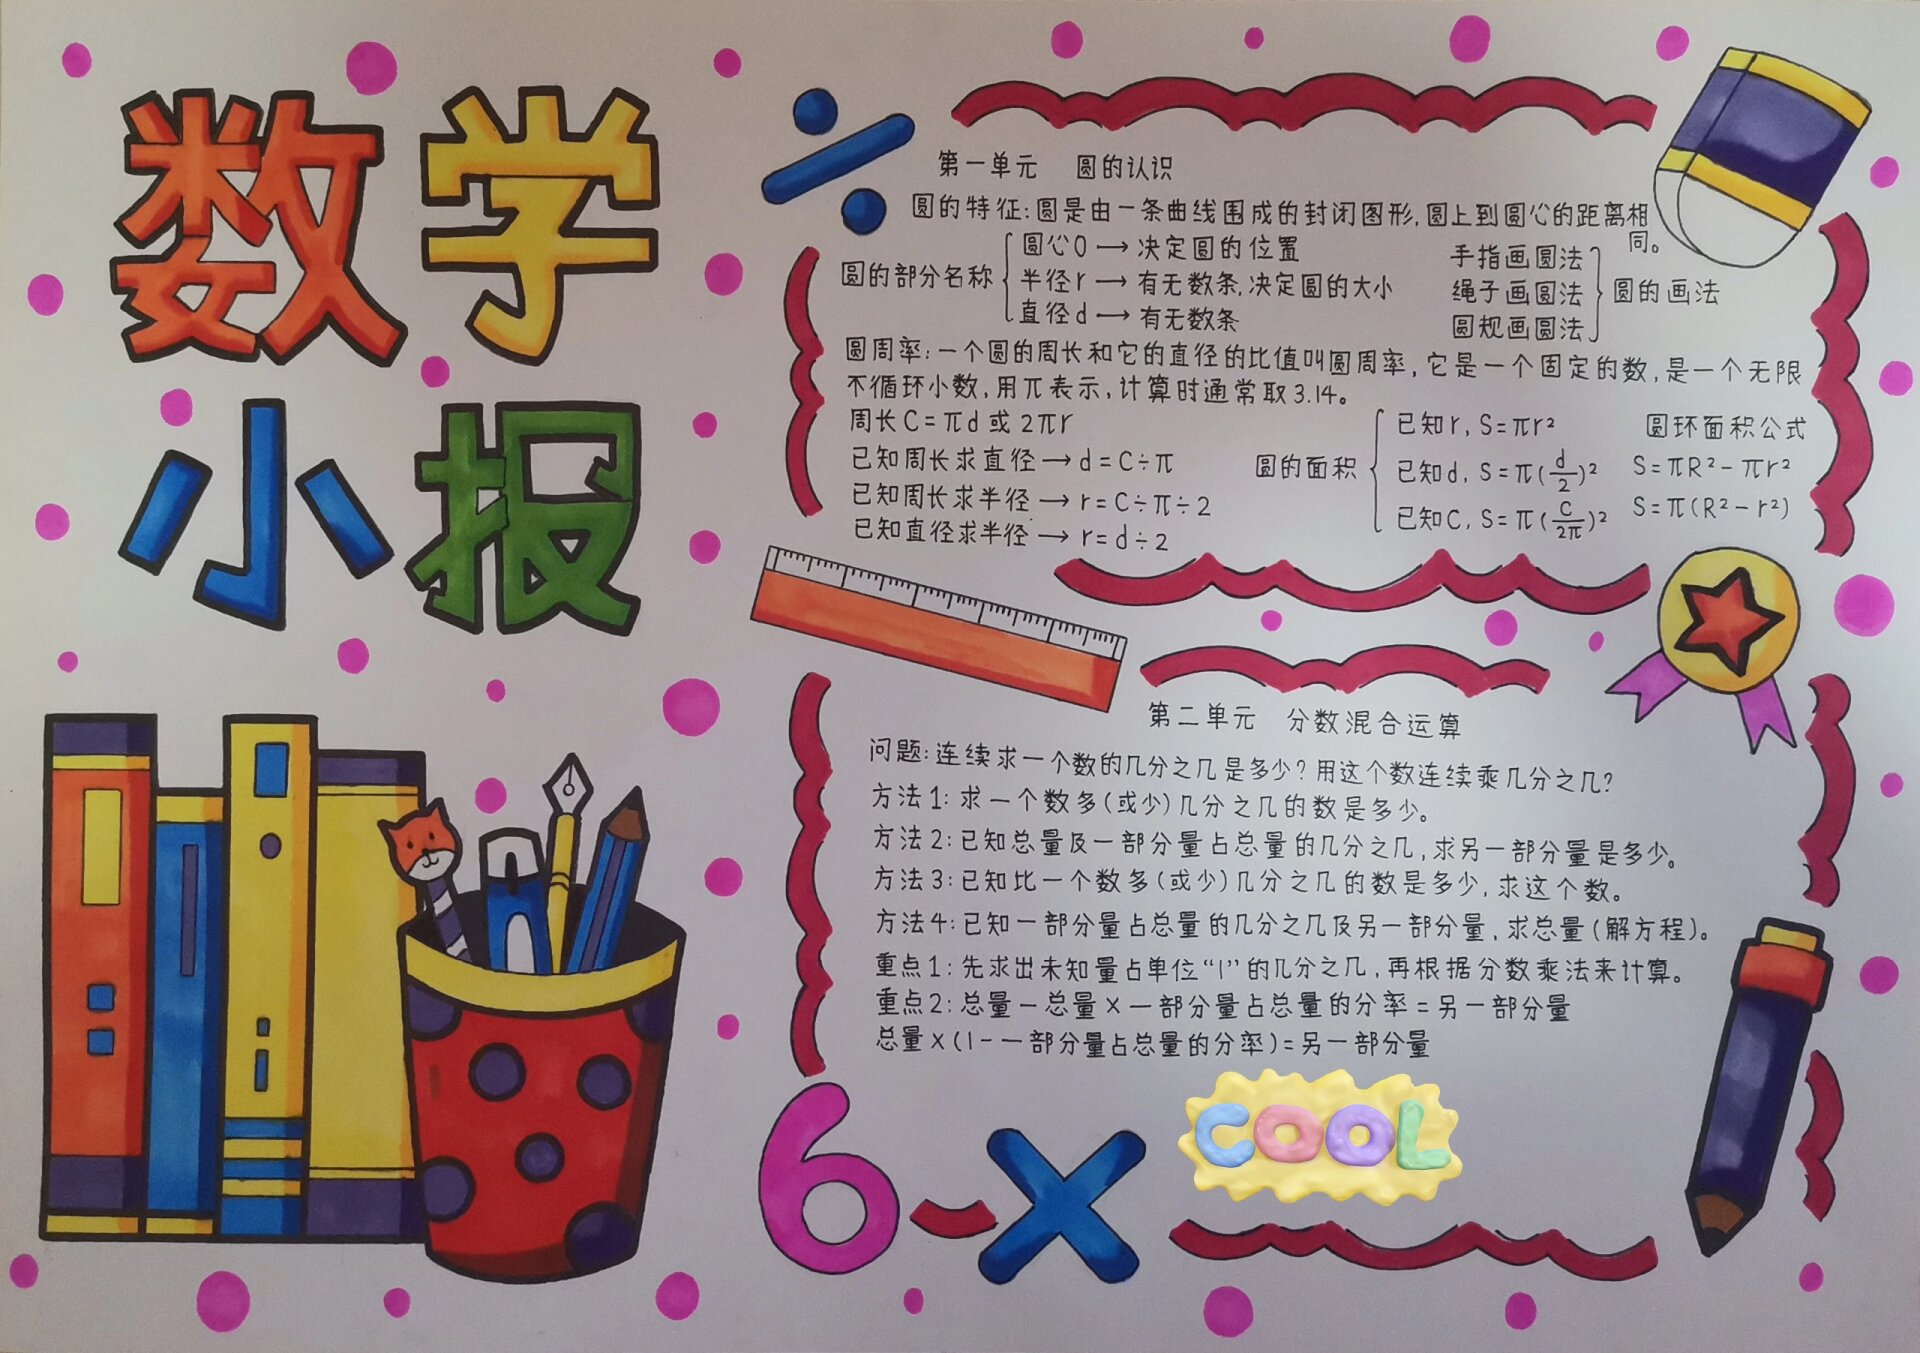 数学
小报
第一单元 圆的认识
圆的特征:圆是由一条曲线围成的封闭图形,圆上到圆心的距离相
同。
圆的部分名称
圆心O→决定圆的位置
半径r→有无数条,决定圆的大小
直径d→有无数条
手指画圆法
绳子画圆法
圆规画圆法
圆的画法
圆周率:一个圆的周长和它的直径的比值叫圆周率,它是一个固定的数,是一个无限
不循环小数,用π表示,计算时通常取3.14。
周长C=πd或2πr
已知周长求直径→d=C÷π
已知周长求半径→r=C÷π÷2
已知直径求半径→r=d÷2
圆的面积
已知r,S=πr²
已知d,S=π(d/2)²
已知C,S=π(C/2π)²
圆环面积公式
S=πR²-πr²
S=π(R²-r²)
第二单元 分数混合运算
问题:连续求一个数的几分之几是多少?用这个数连续乘几分之几?
方法1:求一个数多(或少)几分之几的数是多少。
方法2:已知总量及一部分量占总量的几分之几,求另一部分量是多少。
方法3:已知比一个数多(或少)几分之几的数是多少,求这个数。
方法4:已知一部分量占总量的几分之几及另一部分量,求总量(解方程)。
重点1:先求出未知量占单位“1”的几分之几,再根据分数乘法来计算。
重点2:总量-总量×一部分量占总量的分率=另一部分量
总量×(1-一部分量占总量的分率)=另一部分量
6-×
COOL